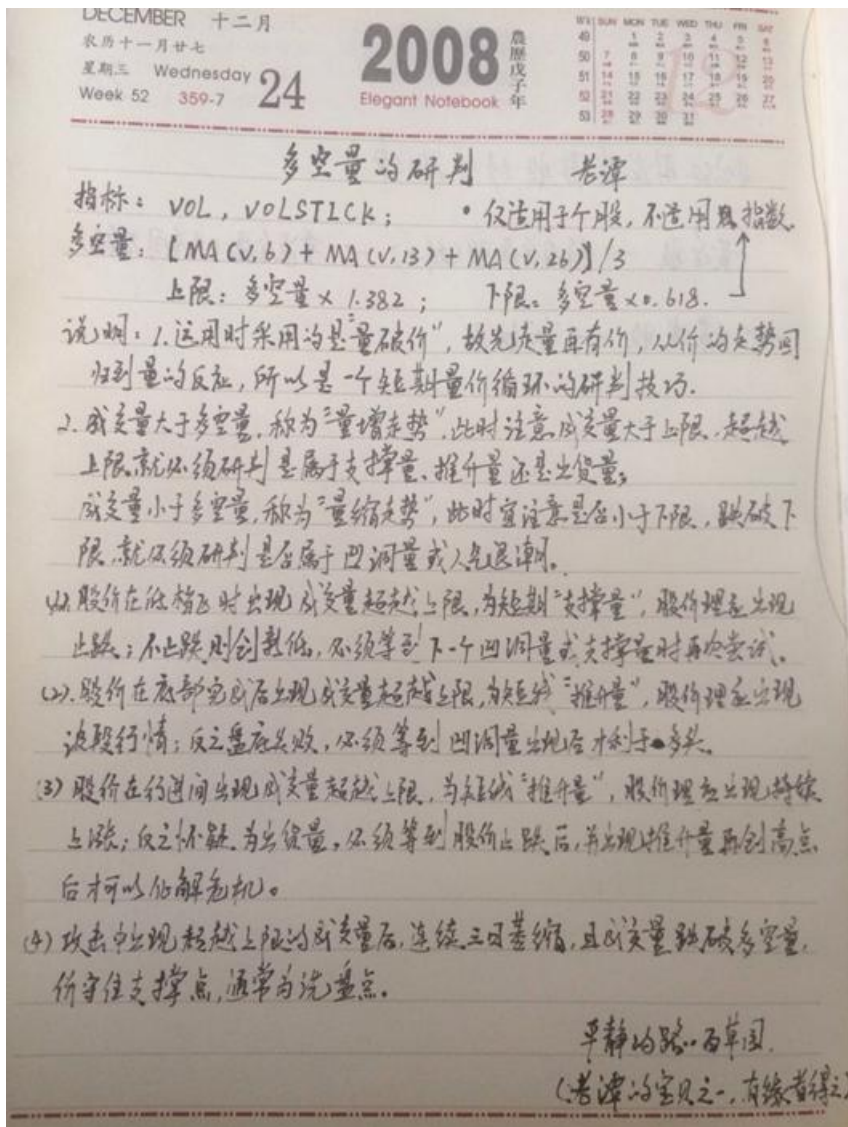 DECEMBER 十二月
农历十一月廿七
星期三 Wednesday 24
Week 52 359-7
2008
Elegant Notebook
農歷戊子年
WK SUN MON TUE WED THU FRI SAT
49 1 2 3 4 5 6
50 7 8 9 10 11 12 13
51 14 15 16 17 18 19 20
52 21 22 23 24 25 26 27
53 28 29 30 31
12
多空量的研判 老谭
指标：VOL，VOLSTICK； •仅适用于个股，不适用指数.
多空量：[MA(V,6)+MA(V,13)+MA(V,26)]/3
上限：多空量×1.382； 下限：多空量×0.618.
说明：1.运用时采用的是"量破价"，故先有量再有价，从价的走势回
归到量的反应，所以是一个短期量价循环的研判技巧.
2.成交量大于多空量，称为"量增走势"，此时注意成交量大于上限，超越
上限，就必须研判是属于支撑量、推升量还是出货量；
成交量小于多空量，称为"量缩走势"，此时宜注意是否小于下限，跌破下
限，就必须研判是否属于凹洞量或人气退潮。
(1).股价在低档时出现成交量超越上限，为短期"支撑量"，股价理应出现
止跌；不止跌则创新低，必须等到下一个凹洞量或支撑量时再次尝试。
(2).股价在底部完成后出现成交量超越上限，为短线"推升量"，股价理应出现
波段行情；反之盘底失败，必须等到凹洞量出现后才利于多头.
(3)股价在行进间出现成交量超越上限，为短线"推升量"，股价理应出现持续
上涨；反之怀疑为出货量，必须等到股价止跌后，并出现推升量再创高点
后才可以化解危机。
(4)攻击中出现超越上限的成交量后，连续三日萎缩，且成交量跌破多空量，
价守住支撑点，通常为洗盘点。
平静的路..百草园.
(老谭的宝贝之一，有缘者得之)